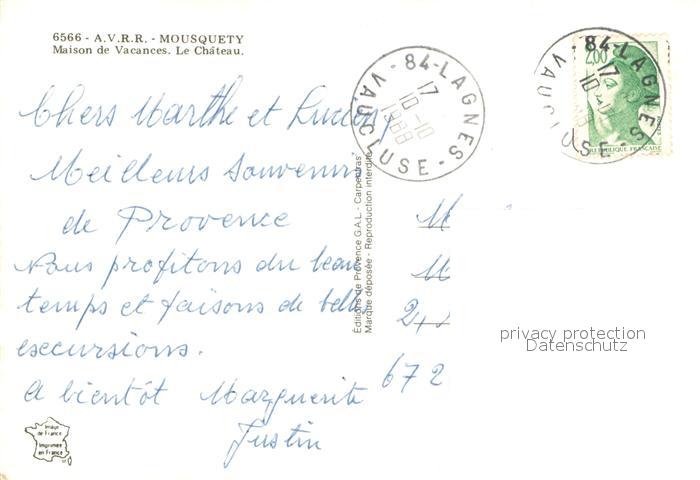 6566 - A.V.R.R. - MOUSQUETY
Maison de Vacances. Le Château.
Chers Marthe et Lucien,
Meilleurs souvenirs
de Provence
Nous profitons du beau
temps et faisons de belles
excursions.
A bientôt Marguerite
Justin
Image
de France
Imprimée
en France
Editions de Provence G.A.L - Carpentras
Marque déposée - Reproduction interdite
84-LAGNES
17
10-10
1988
VAUCLUSE
84-LAGNES
17
10
VAUCLUSE
2,00
REPUBLIQUE FRANÇAISE
M
M
672
privacy protection
Datenschutz